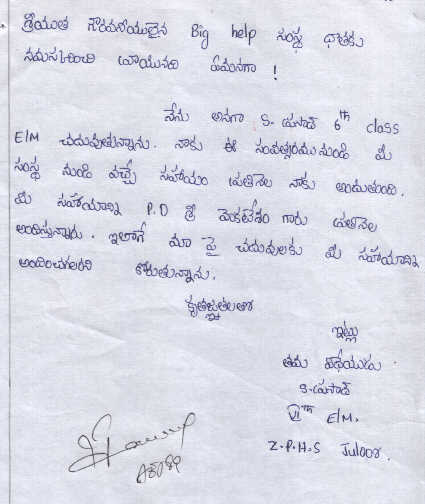 శ్రీయుత గౌరవనీయులైన Big help సంస్థ దాతకు
నమస్కరించి వ్రాయునది ఏమనగా !
నేను అనగా S. ప్రసాద్ 6th class
E/M చదువుతున్నాను. నాకు ఈ సంవత్సరము నుండి మీ
సంస్థ నుండి వచ్చే సహాయం ప్రతినెల నాకు అందుతుంది.
మీ సహాయాన్ని P.D శ్రీ వెంకటేశం గారు ప్రతినెల
అందిస్తున్నారు. ఇలాగే మా పై చదువులకు మీ సహాయాన్ని
అందించగలరని కోరుతున్నాను.
కృతజ్ఞతలతో
ఇట్లు
తమ విధేయుడు.
S. ప్రసాద్
VIth E/M.
Z.P.H.S Juloor.